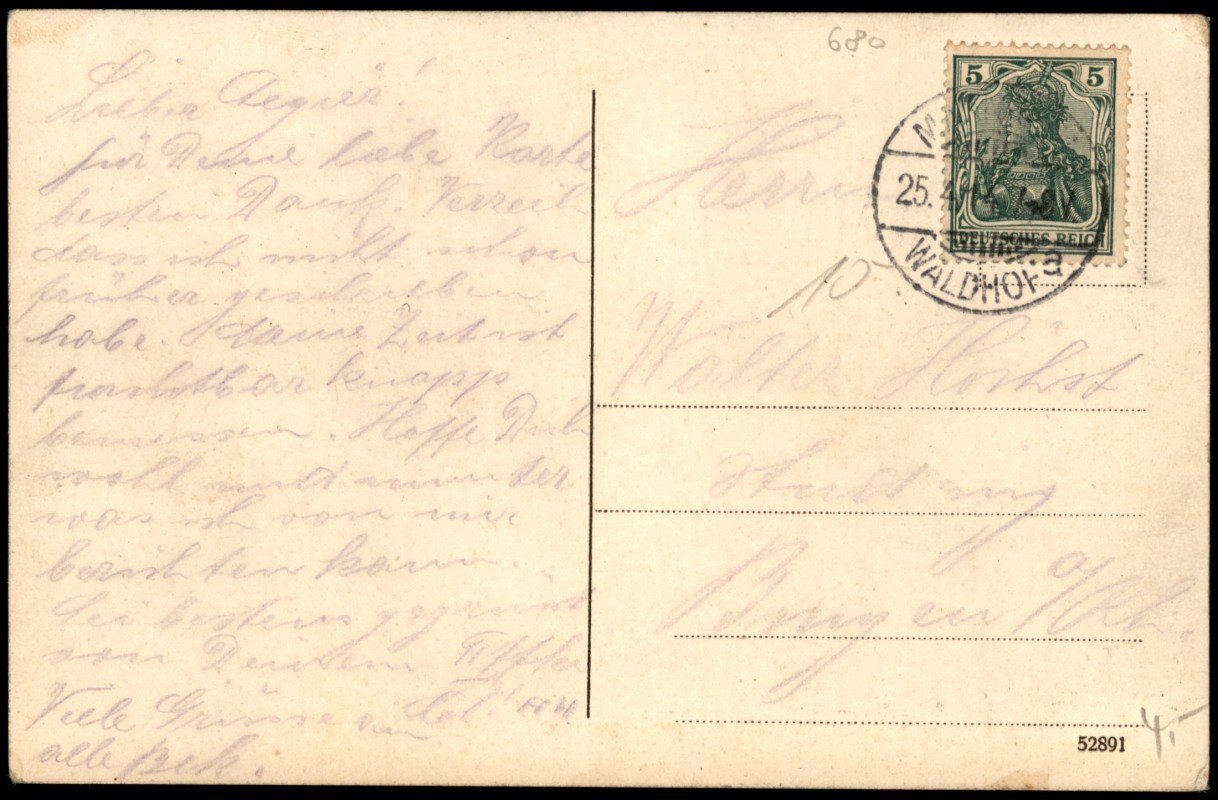 680
5 5
DEUTSCHES REICH
25. 4.
WALDHOF
a
Lieber
für Deine liebe Karte
besten Dank. Verzeih
dass ich nicht schon
früher geschrieben
habe. Zeit ist
furchtbar knapp
bemessen. Hoffe Dich
wohl und munter
was ich von mir
berichten kann.
Sei bestens gegrüsst
von Deinem
Viele Grüsse an
alle Bek.
Herrn
10
Walter Höchst
Bingen a/Rh.
52891
4.-